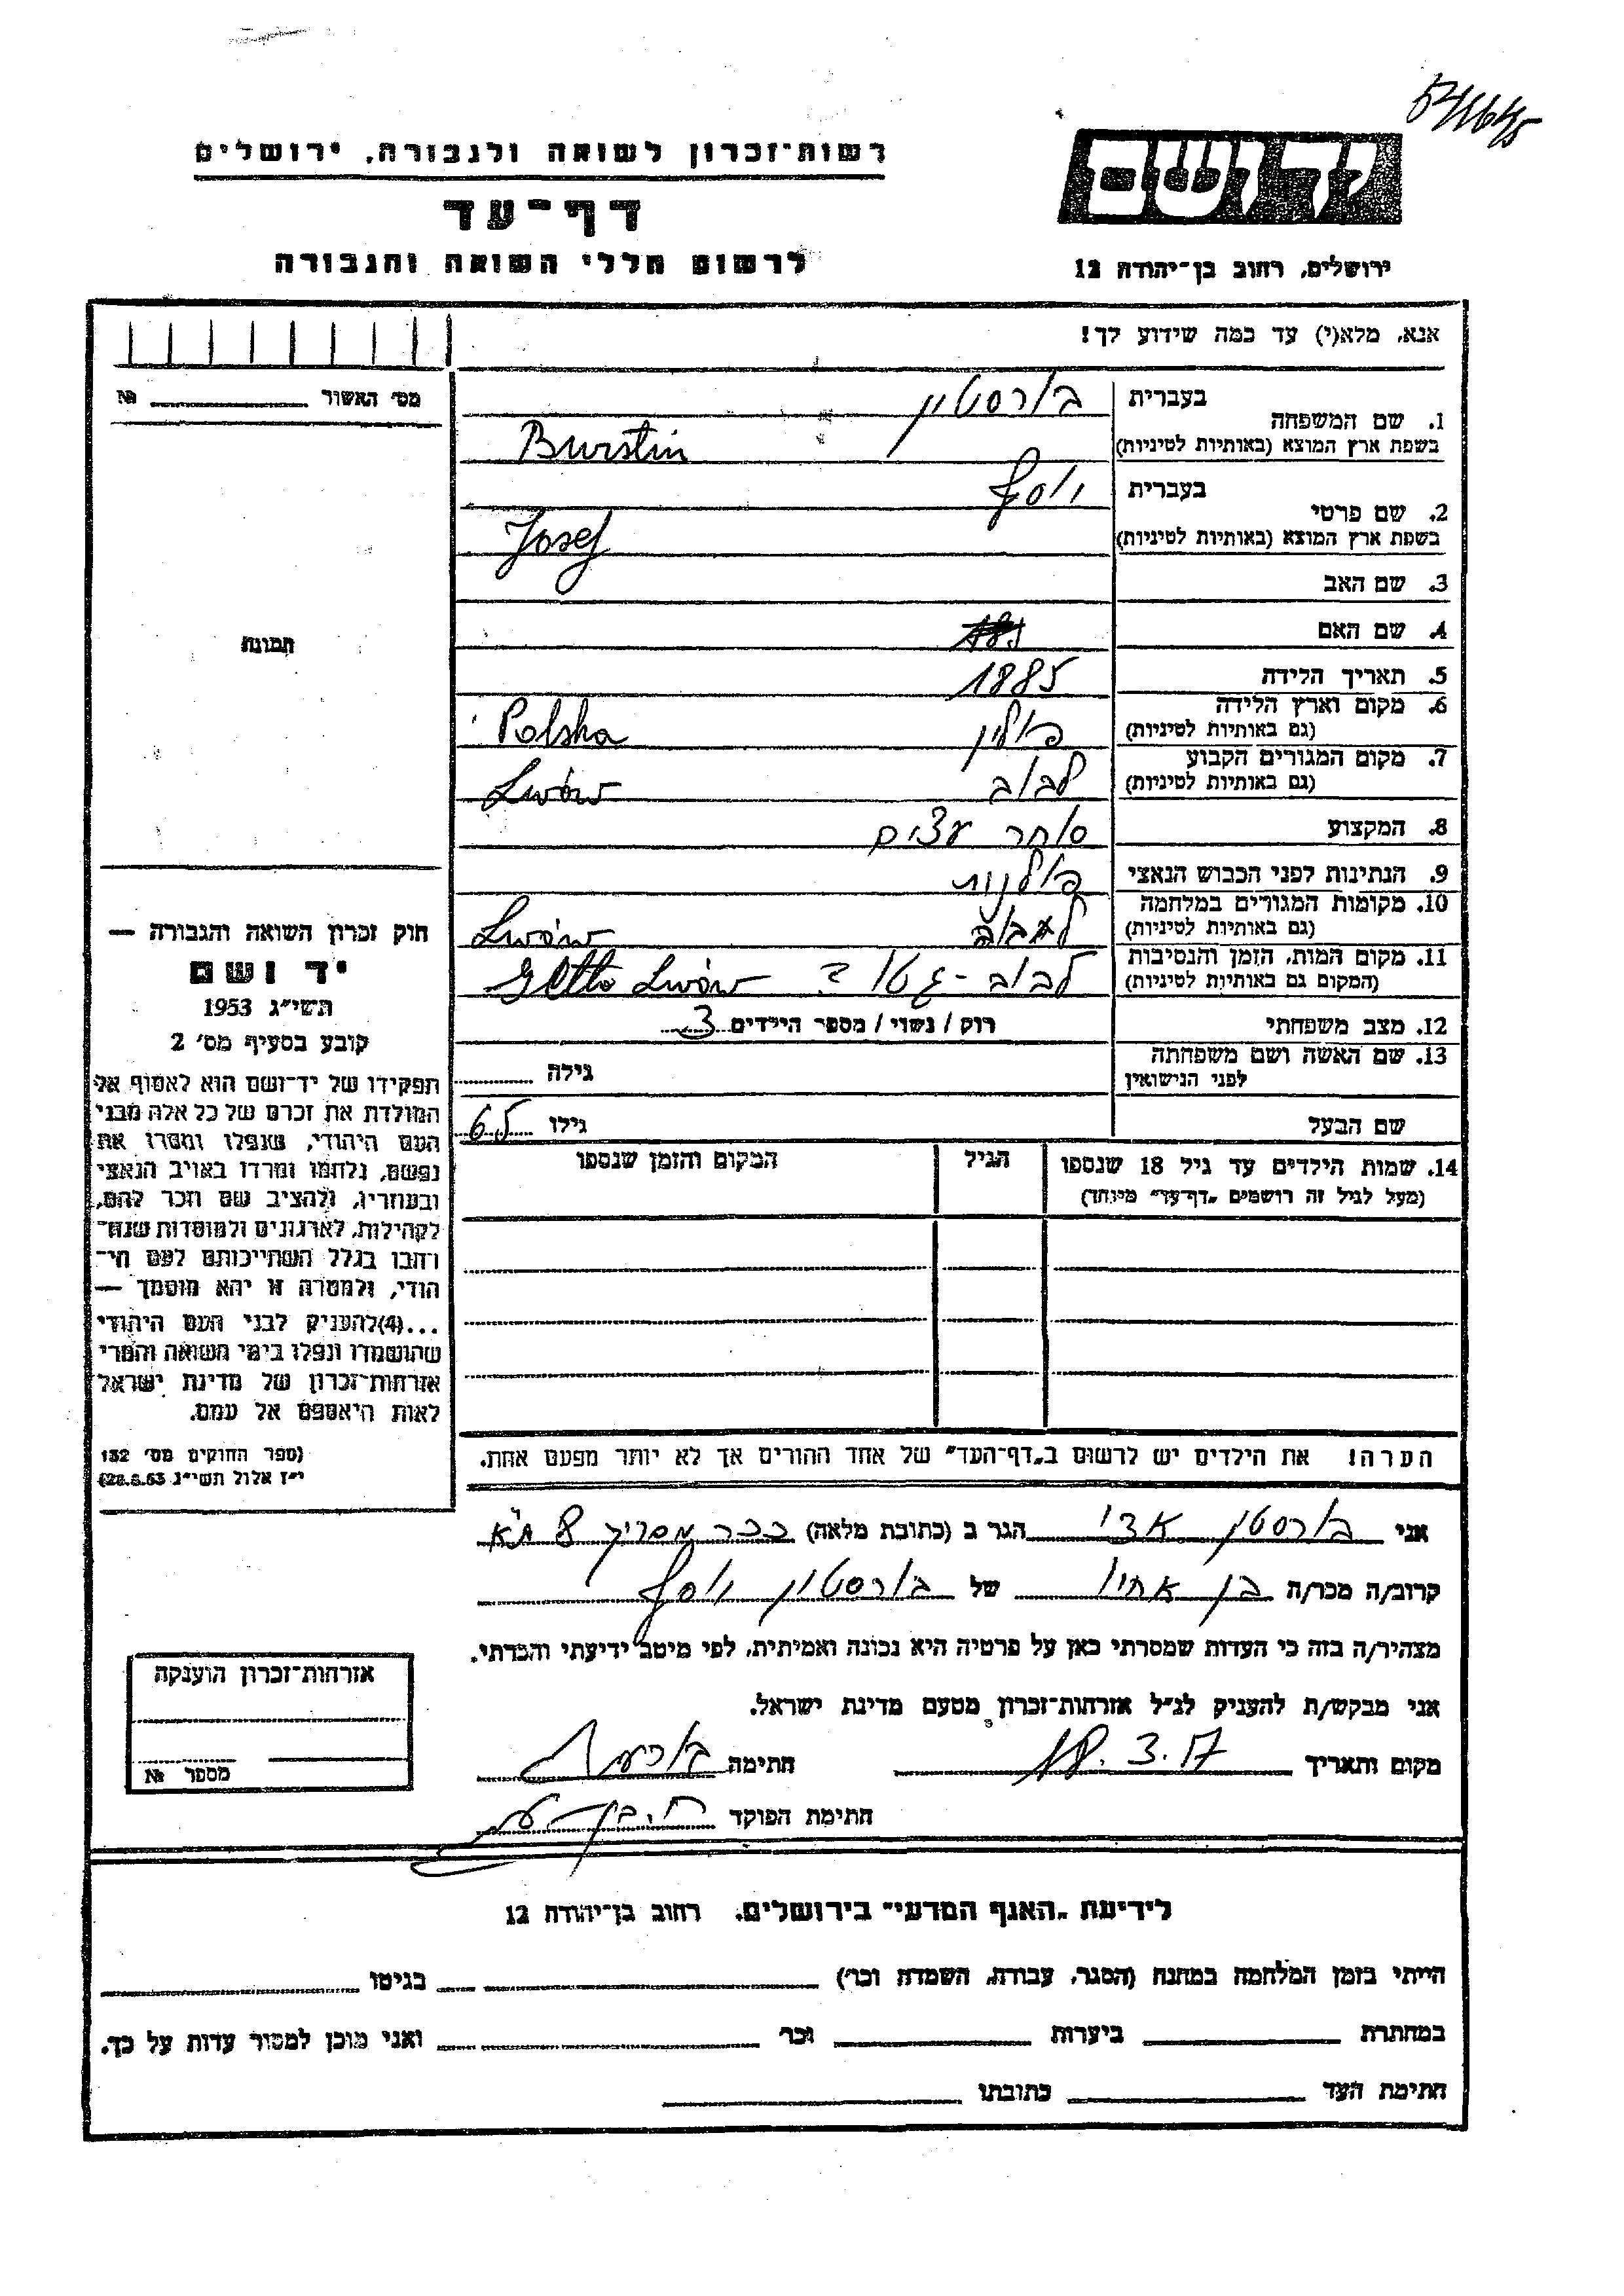 רשות־זכרון לשואה ולגבורה, ירושלים
דף־עד
לרשום חללי השואה והגבורה
יד ושם
ירושלים, רחוב בן־יהודה 12
אנא, מלא(י) עד כמה שידוע לך!
מס׳ האשור № ________
1. שם המשפחה
בעברית בורסטין
בשפת ארץ המוצא (באותיות לטיניות) Burstin
2. שם פרטי
בעברית יוסף
בשפת ארץ המוצא (באותיות לטיניות) Josef
3. שם האב
4. שם האם
5. תאריך הלידה 1885
6. מקום וארץ הלידה פולין Polska
(גם באותיות לטיניות)
7. מקום המגורים הקבוע לבוב Lwów
(גם באותיות לטיניות)
8. המקצוע סוחר עצים
9. הנתינות לפני הכבוש הנאצי פולנית
10. מקומות המגורים במלחמה לבוב Lwów
(גם באותיות לטיניות)
11. מקום המות, הזמן והנסיבות לבוב - גטו ? Getto Lwów
(המקום גם באותיות לטיניות)
12. מצב משפחתי רוק / נשוי / מספר הילדים 3
13. שם האשה ושם משפחתה
לפני הנישואין גילה
שם הבעל גילו 65
14. שמות הילדים עד גיל 18 שנספו הגיל המקום והזמן שנספו
(מעל לגיל זה רושמים „דף־עד״ מיוחד)
הערה! את הילדים יש לרשום ב„דף־העד״ של אחד ההורים אך לא יותר מפעם אחת.
תמונה
חוק זכרון השואה והגבורה —
יד ושם
תשי״ג 1953
קובע בסעיף מס׳ 2
תפקידו של יד־ושם הוא לאסוף אל
המולדת את זכרם של כל אלה מבני
העם היהודי, שנפלו ומסרו את
נפשם, נלחמו ומרדו באויב הנאצי
ובעוזריו, ולהציב שם וזכר להם,
לקהילות, לארגונים ולמוסדות שנח־
רהבו בגלל השתייכותם לעם הי־
הודי, ולמטרה זו יהא מוסמך —
...(4)להעניק לבני העם היהודי
שהושמדו ונפלו בימי השואה והמרי
אזרחות־זכרון של מדינת ישראל
לאות היאספם אל עמם.
(ספר החוקים מס׳ 132
י״ז אלול תשי״ג 28.8.53)
אני בורסטן אדי הגר ב (כתובת מלאה) ככר מסריק 8 ת״א
קרוב/ה מכר/ה בן אחיו של בורסטין יוסף
מצהיר/ה בזה כי העדות שמסרתי כאן על פרטיה היא נכונה ואמיתית, לפי מיטב ידיעתי והכרתי.
אני מבקש/ת להעניק לנ״ל אזרחות־זכרון מטעם מדינת ישראל.
מקום ותאריך 18. 3. 17 חתימה
חתימת הפוקד
אזרחות־זכרון הוענקה
מספר №
לידיעת „האגף המדעי״ בירושלים, רחוב בן־יהודה 12
הייתי בזמן המלחמה במחנה (הסגר, עבודה, השמדה וכר׳) ________ בגיטו ________
במחתרת ________ ביערות ________ וכר ________ ואני מוכן למסור עדות על כך.
חתימת העד ________ כתובתו ________